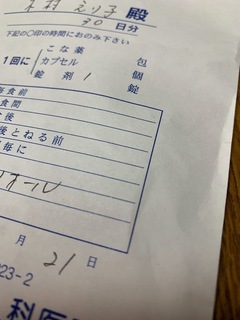 木村 えり子 殿
30 日分
下記の〇印の時間におのみ下さい
1回に
こな薬 包
カプセル 個
錠剤 1 錠
食前
食間
後
後とねる前
毎に
オール
月 21 日
23-2
科医